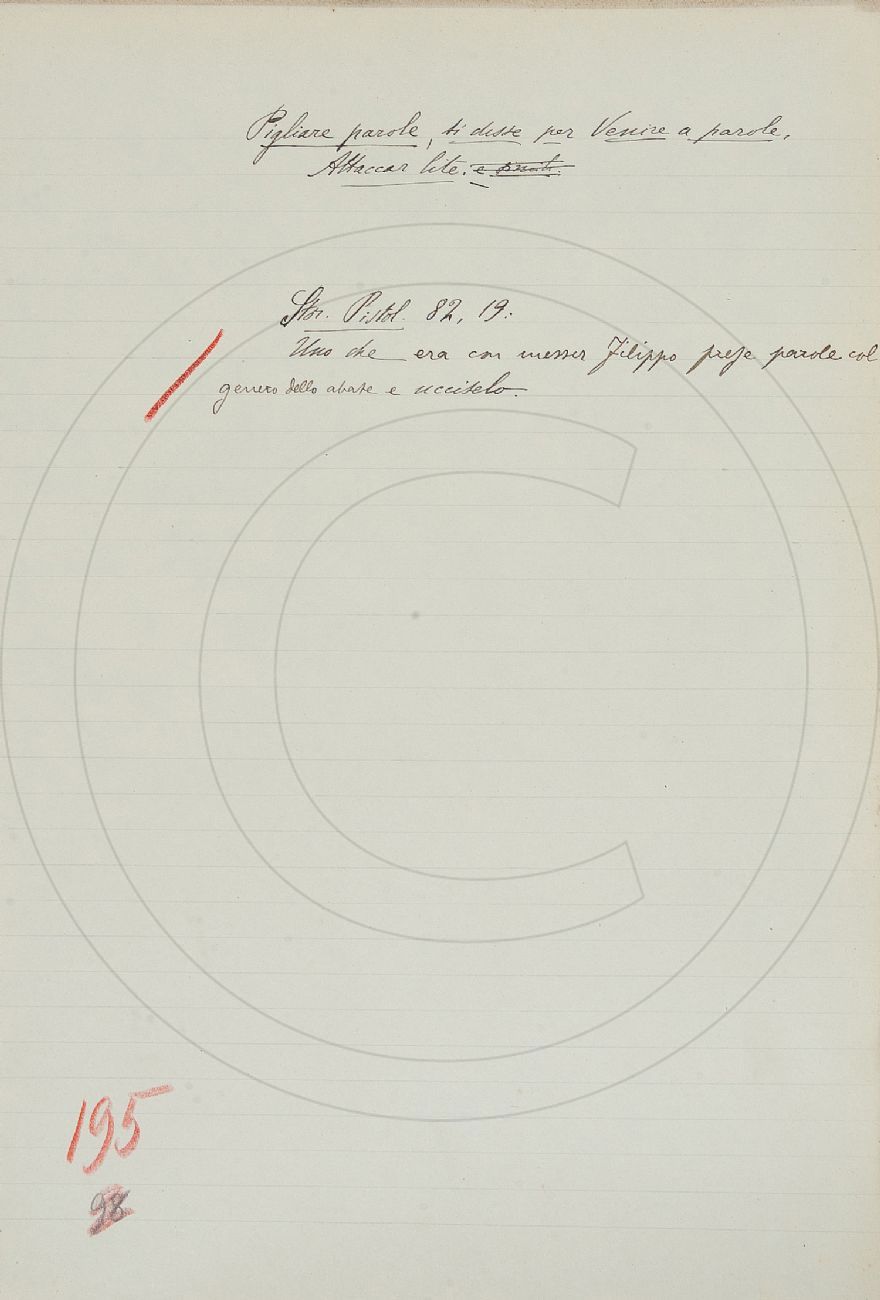 Pigliare parole, si disse per Venire a parole,
Attaccar lite. e simili.
Stor. Pistol. 82, 19:
Uno che era con messer Filippo prese parole col
genero dello abate e ucciselo.
195
98